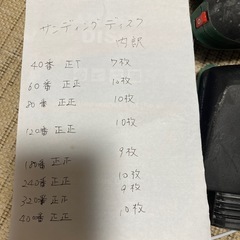 サンディングディスク
内訳
40番 正T 7枚
60番 正正 10枚
80番 正正 10枚
120番 正正 10枚
180番 正正 9枚
240番 正正 10枚
320番 正正 9枚
400番 正正 10枚